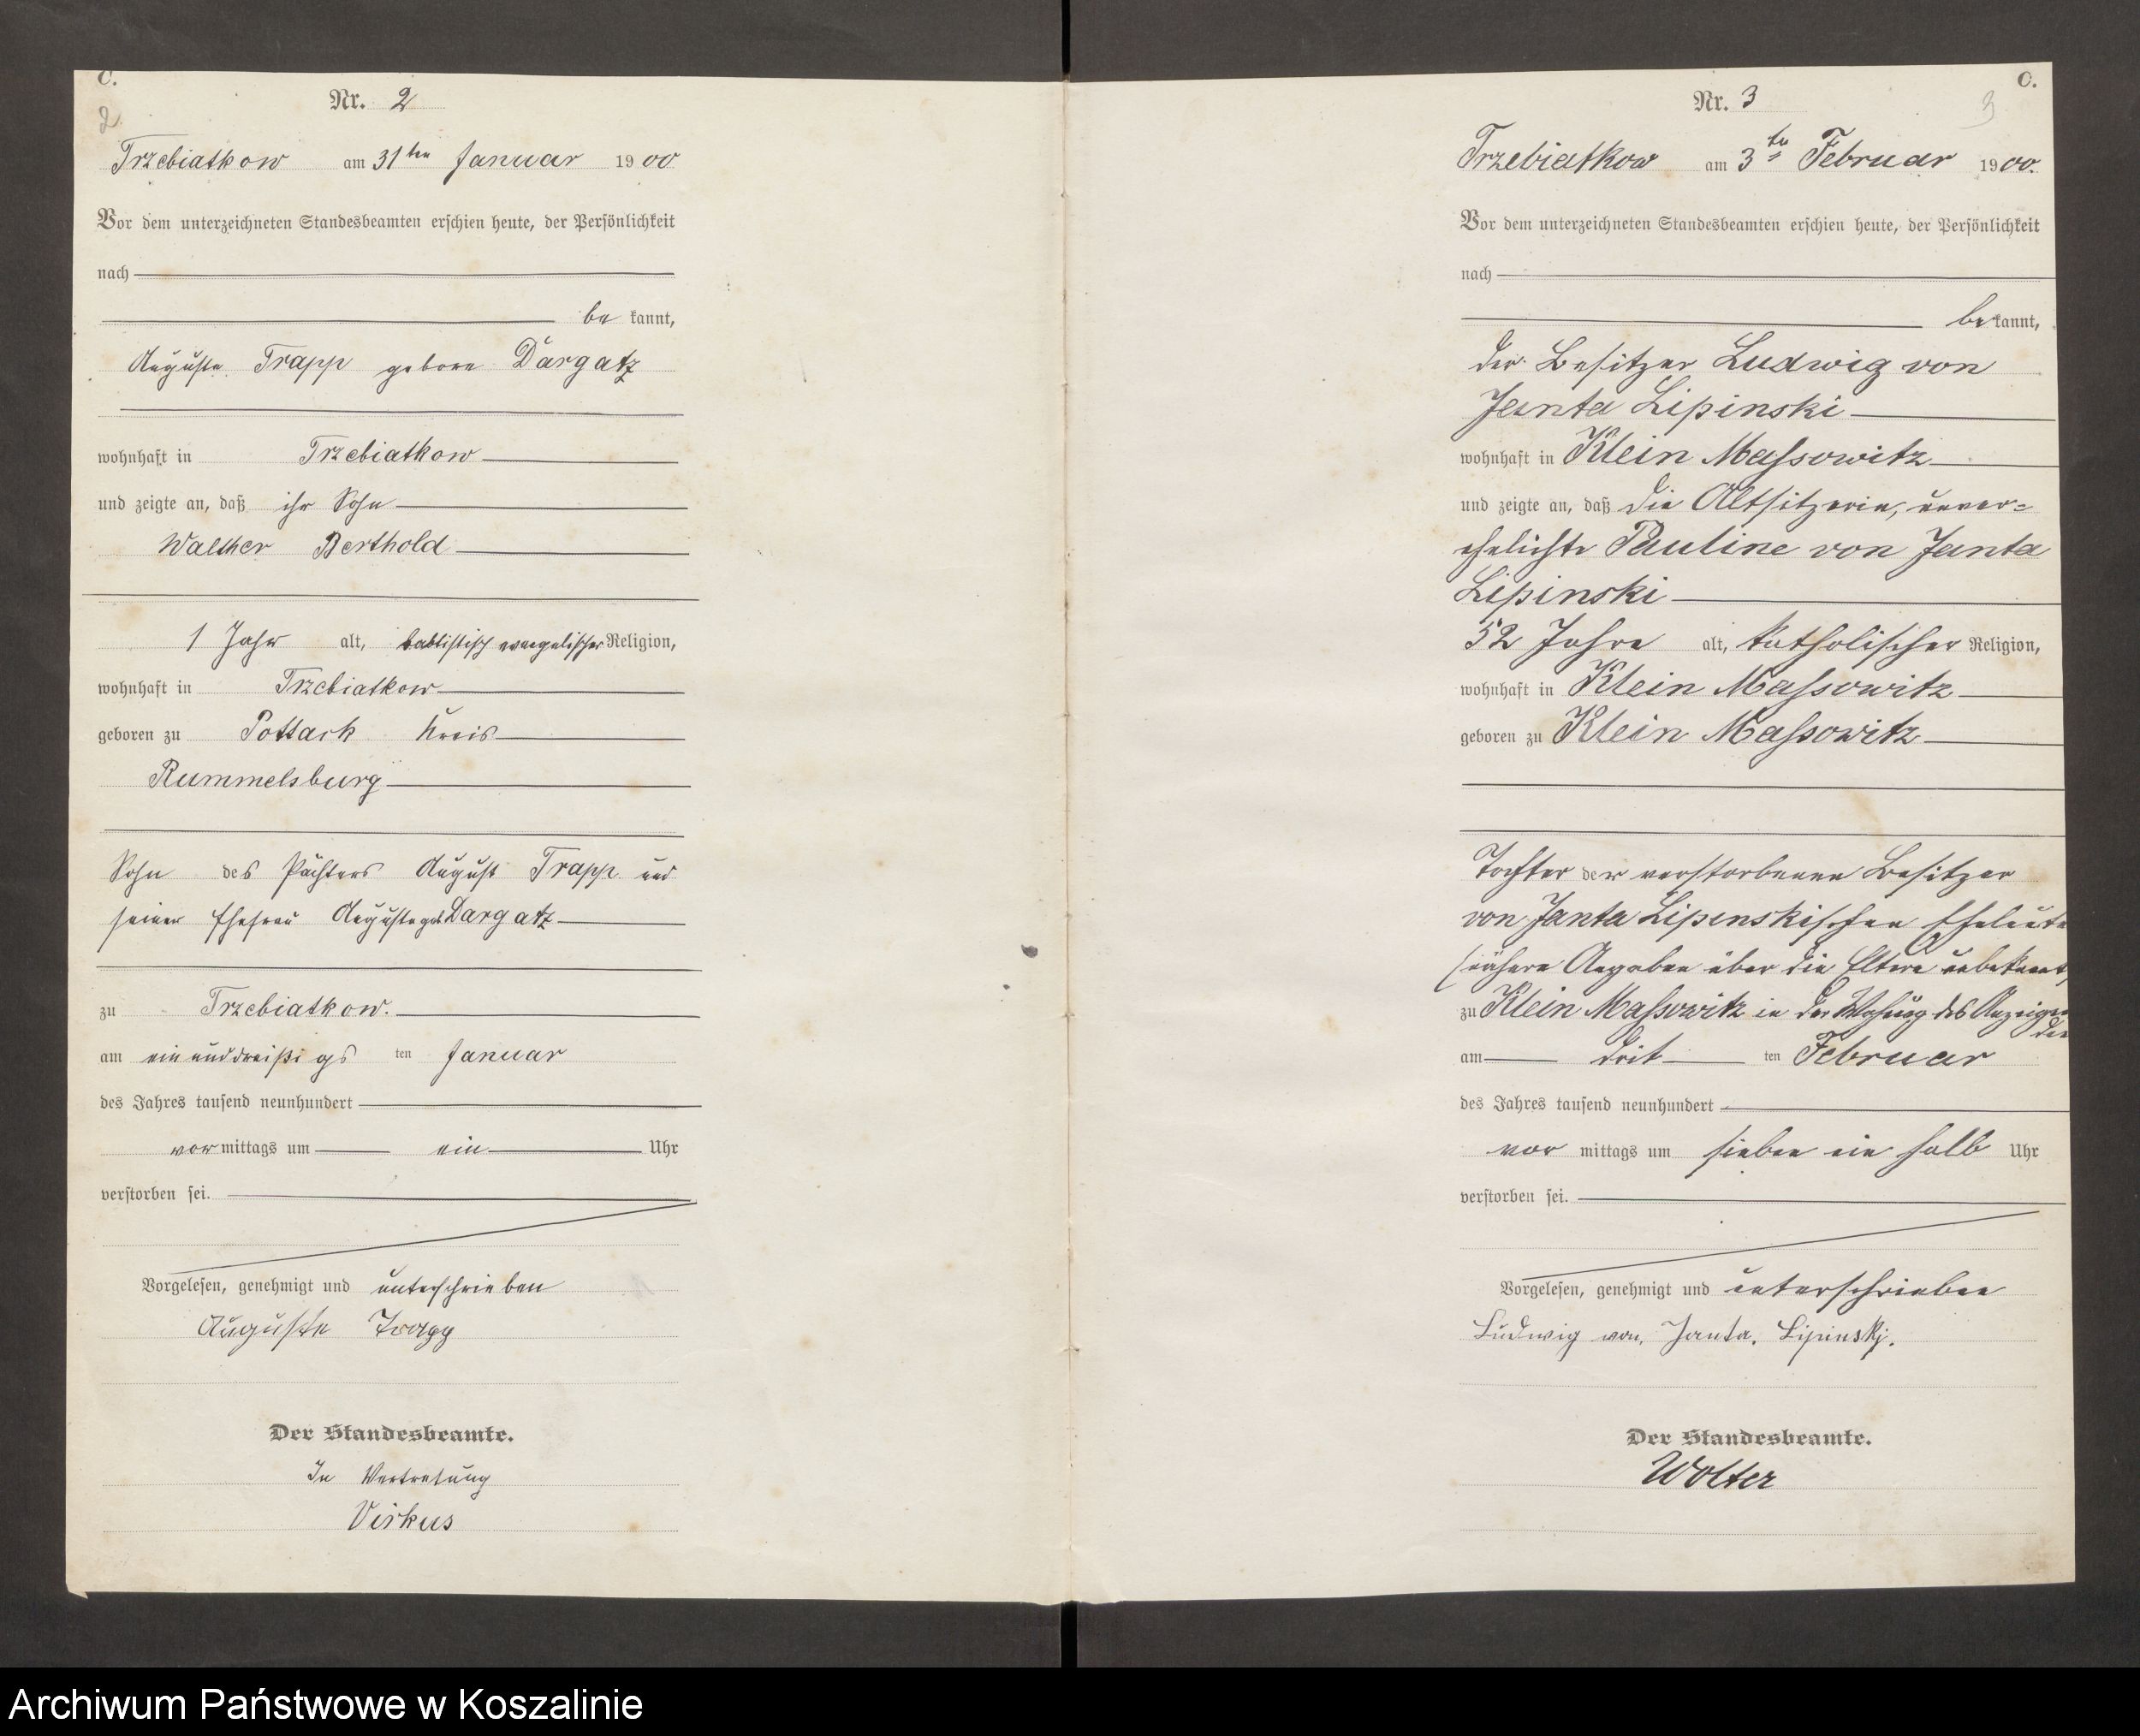 C.
2
Nr. 2
Trzebiatkow am 31ten Januar 1900
Vor dem unterzeichneten Standesbeamten erschien heute, der Persönlichkeit
nach
be kannt,
Auguste Trapp geborne Dargatz
wohnhaft in Trzebiatkow
und zeigte an, daß ihr Sohn
Walther Berthold
1 Jahr alt, babtistisch evangelischer Religion,
wohnhaft in Trzebiatkow
geboren zu Pottack Kreis
Rummelsburg
Sohn des Pächters August Trapp und
seiner Ehefrau Auguste geb Dargatz
zu Trzebiatkow.
am ein und dreißigs ten Januar
des Jahres tausend neunhundert
vor mittags um ein Uhr
verstorben sei.
Vorgelesen, genehmigt und unterschrieben
Auguste Trapp
Der Standesbeamte.
In Vertretung
Virkus
C.
3
Nr. 3
Trzebiatkow am 3ten Februar 1900.
Vor dem unterzeichneten Standesbeamten erschien heute, der Persönlichkeit
nach
be kannt,
der Besitzer Ludwig von
Janta Lipinski
wohnhaft in Klein Massowitz
und zeigte an, daß die Altsitzerin, unver=
ehelichte Pauline von Janta
Lipinski
52 Jahre alt, katholischer Religion,
wohnhaft in Klein Massowitz
geboren zu Klein Massowitz
Tochter der verstorbenen Besitzer
von Janta Lipinskischen Eheleute
(nähere Angaben über die Eltern unbekannt)
zu Klein Massowitz in der Wohnung des Anzeigen
den
am drit ten Februar
des Jahres tausend neunhundert
vor mittags um sieben ein halb Uhr
verstorben sei.
Vorgelesen, genehmigt und unterschrieben
Ludwig von. Janta. Lipinskj.
Der Standesbeamte.
Wolter
Archiwum Państwowe w Koszalinie